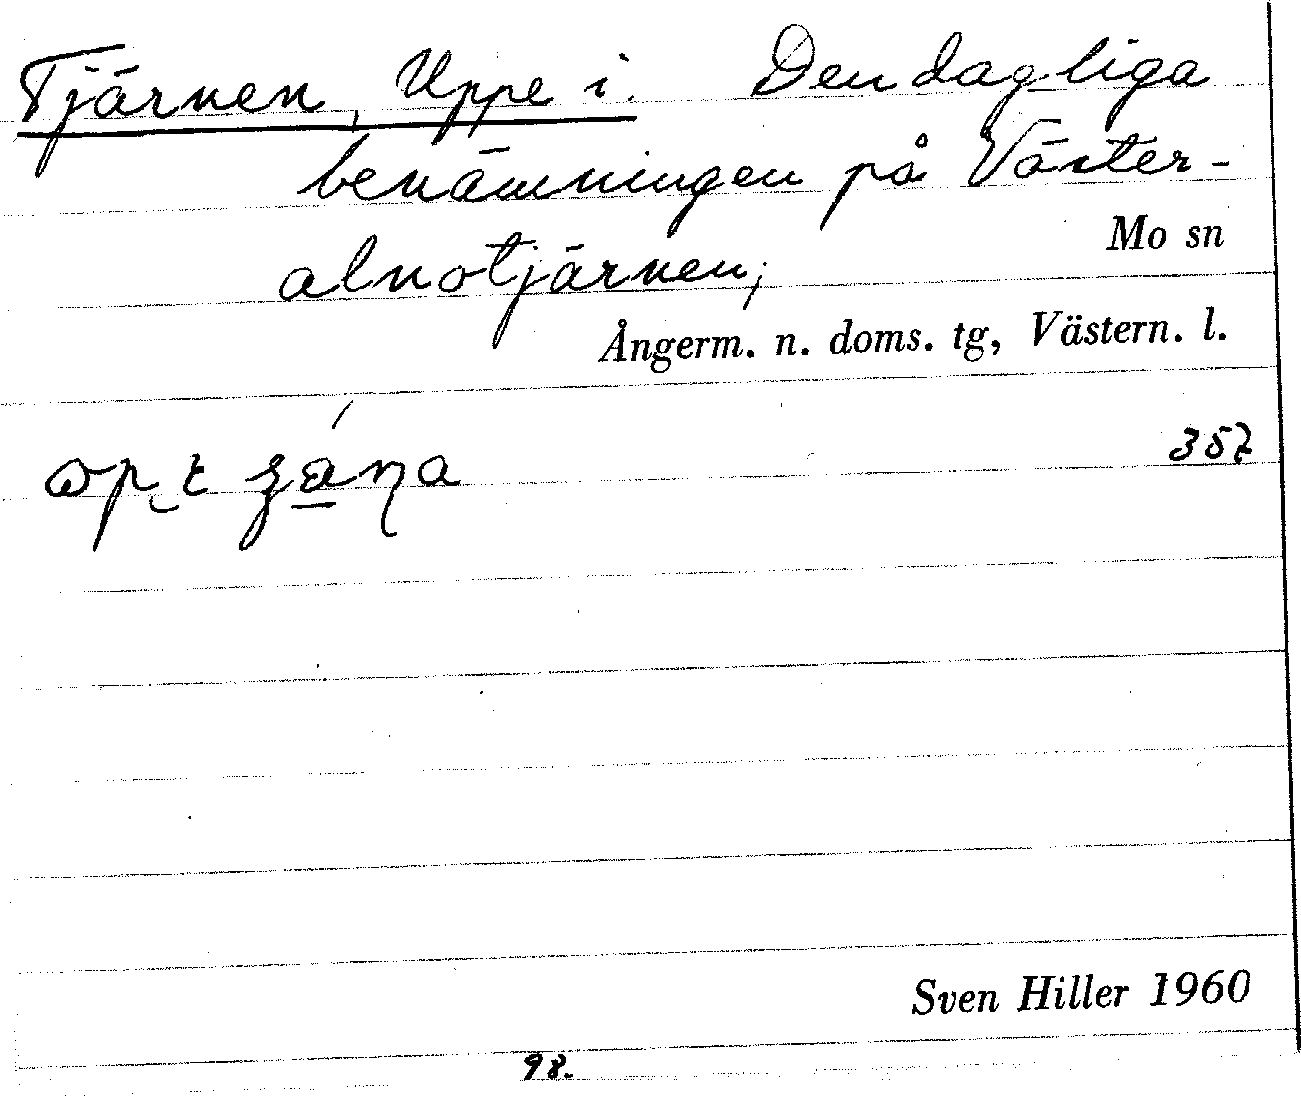 Tjärnen, Uppe i. Den dagliga
benämningen på Väster-
Mo sn
alnötjärnen;
Ångerm. n. doms. tg, Västern. l.
357
Sven Hiller 1960
98.